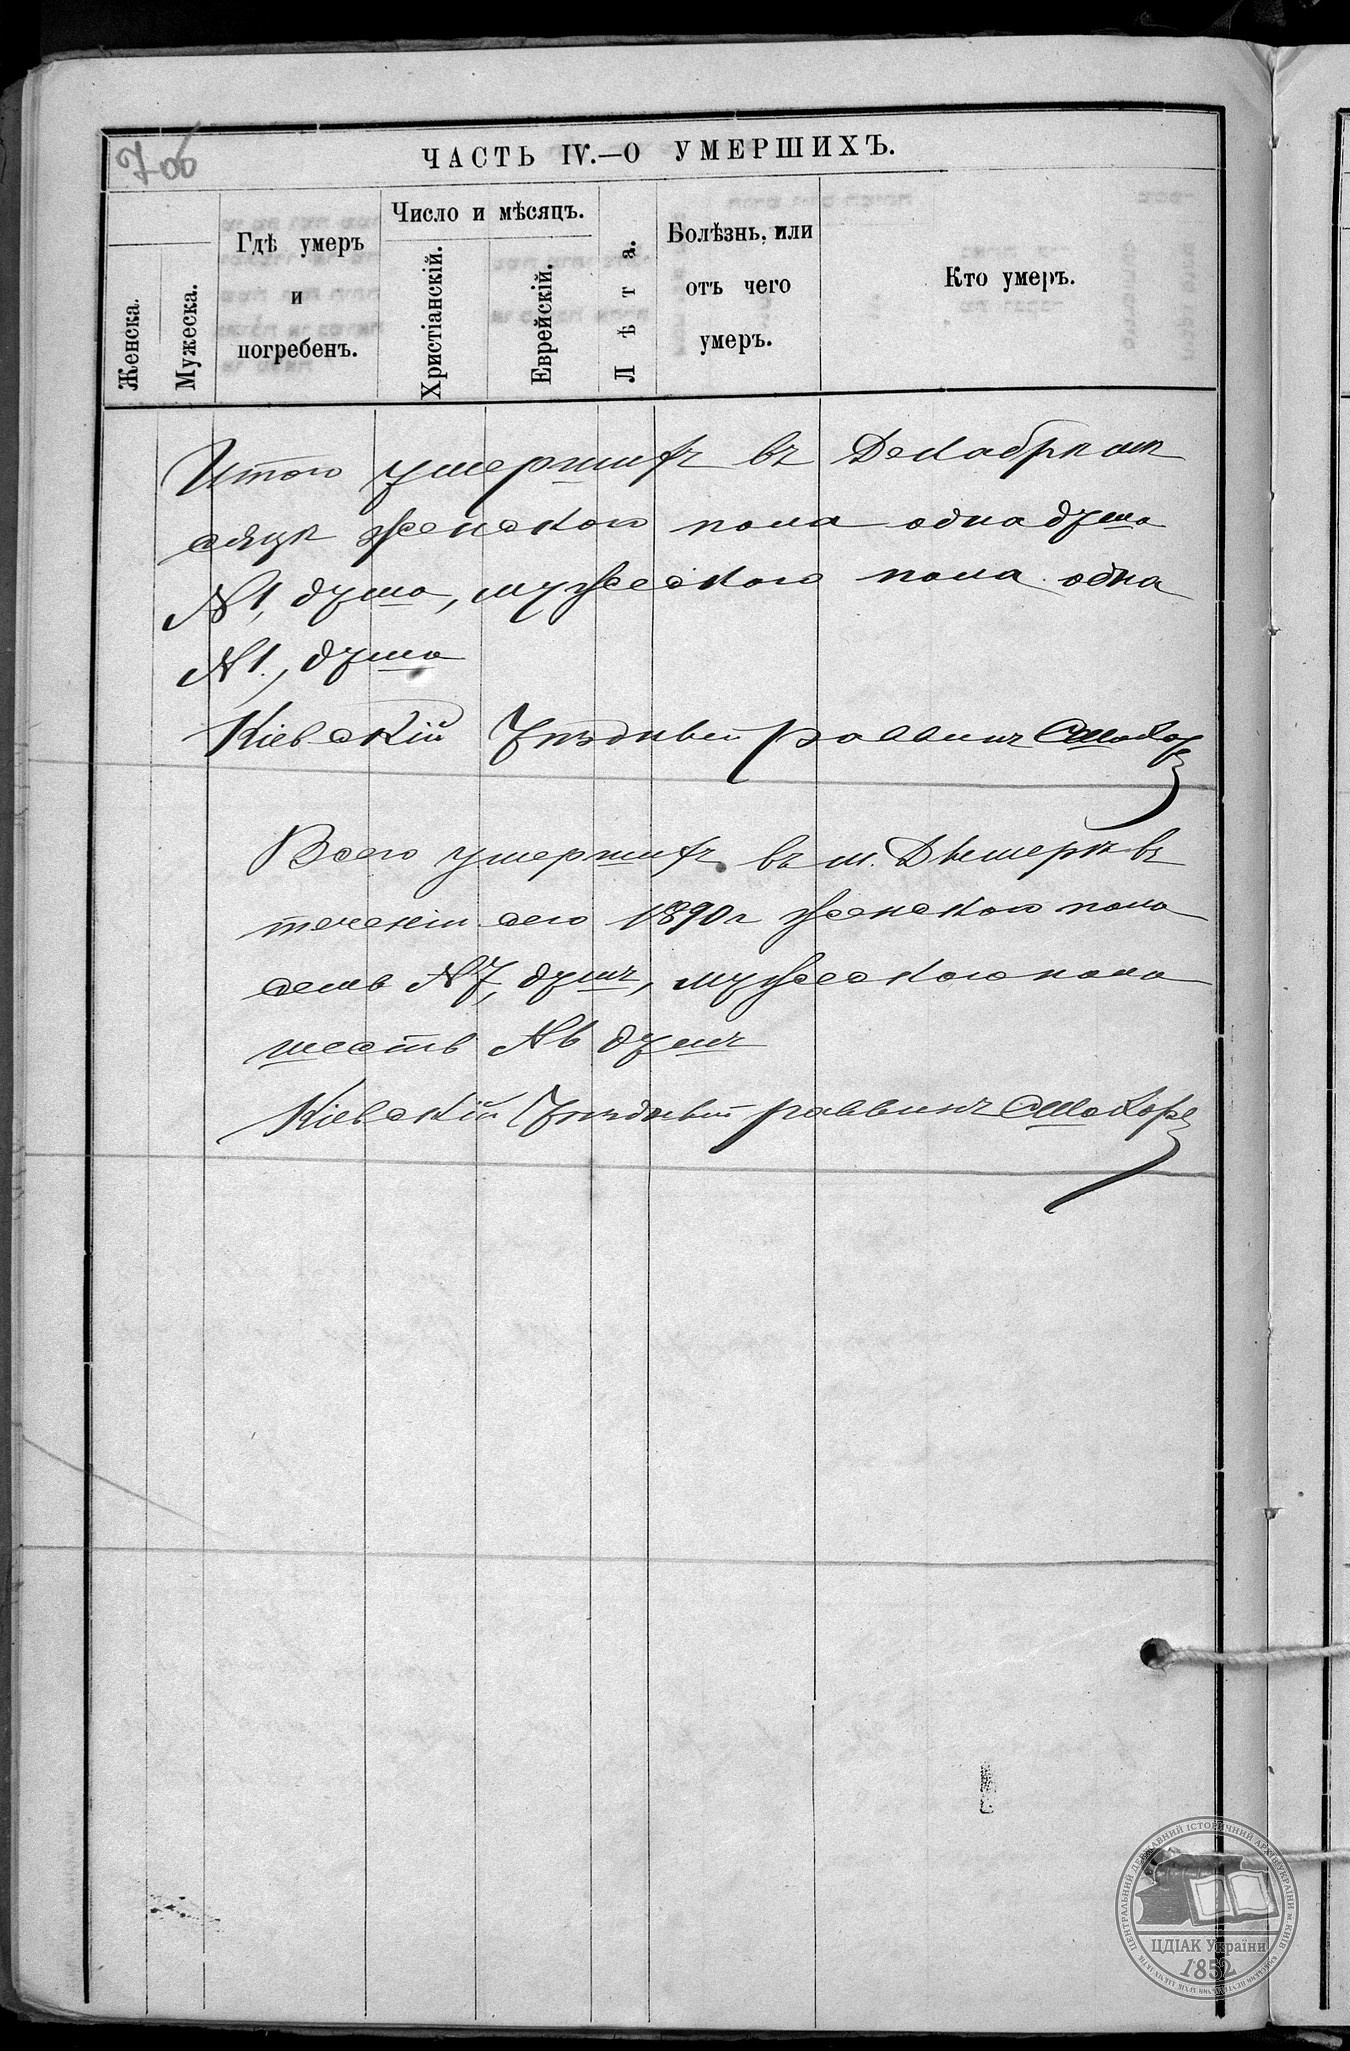 7об
ЧАСТЬ IV.—О УМЕРШИХЪ.
Женска.
Мужеска.
Гдѣ умеръ
и
погребенъ.
Число и мѣсяцъ.
Христіанскій.
Еврейскій.
Лѣта.
Болѣзнь, или
отъ чего
умеръ.
Кто умеръ.
Итого умершихъ въ Декабрѣ мѣ
сяцѣ женскаго пола одна душа
№ 1, душа, мужескаго пола одна
№ 1, душа
Кіевскій Уѣздный раввинъ
Всего умершихъ въ м. Дымеркѣ въ
теченіи сего 1890 г женскаго пола
семь № 7, душъ, мужескаго пола
шесть № 6 душъ
Кіевскій Уѣздный раввинъ
ЦЕНТРАЛЬНИЙ ДЕРЖАВНИЙ ІСТОРИЧНИЙ АРХІВ УКРАЇНИ М. КИЇВ
ЦДІАК України
1852